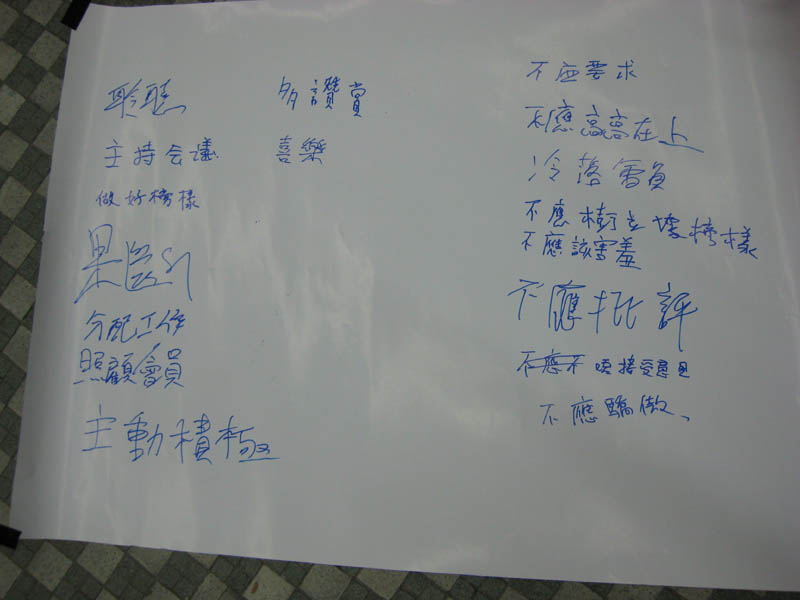 聆聽
主持会议
做好榜樣
果斷
分配工作
照顧會員
主動積極
多讚賞
喜樂
不应要求
不應高高在上
冷落會員
不應樹立壞榜樣
不應該害羞
不應批評
不應不 唔接受意見
不應驕傲、